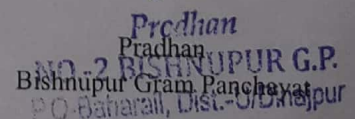 Prcdhan
Pradhan
NO.-2 BISHNUPUR G.P.
Bishnupur Gram Panchayat
P.O-Baharail, Dist.-U/Dinajpur